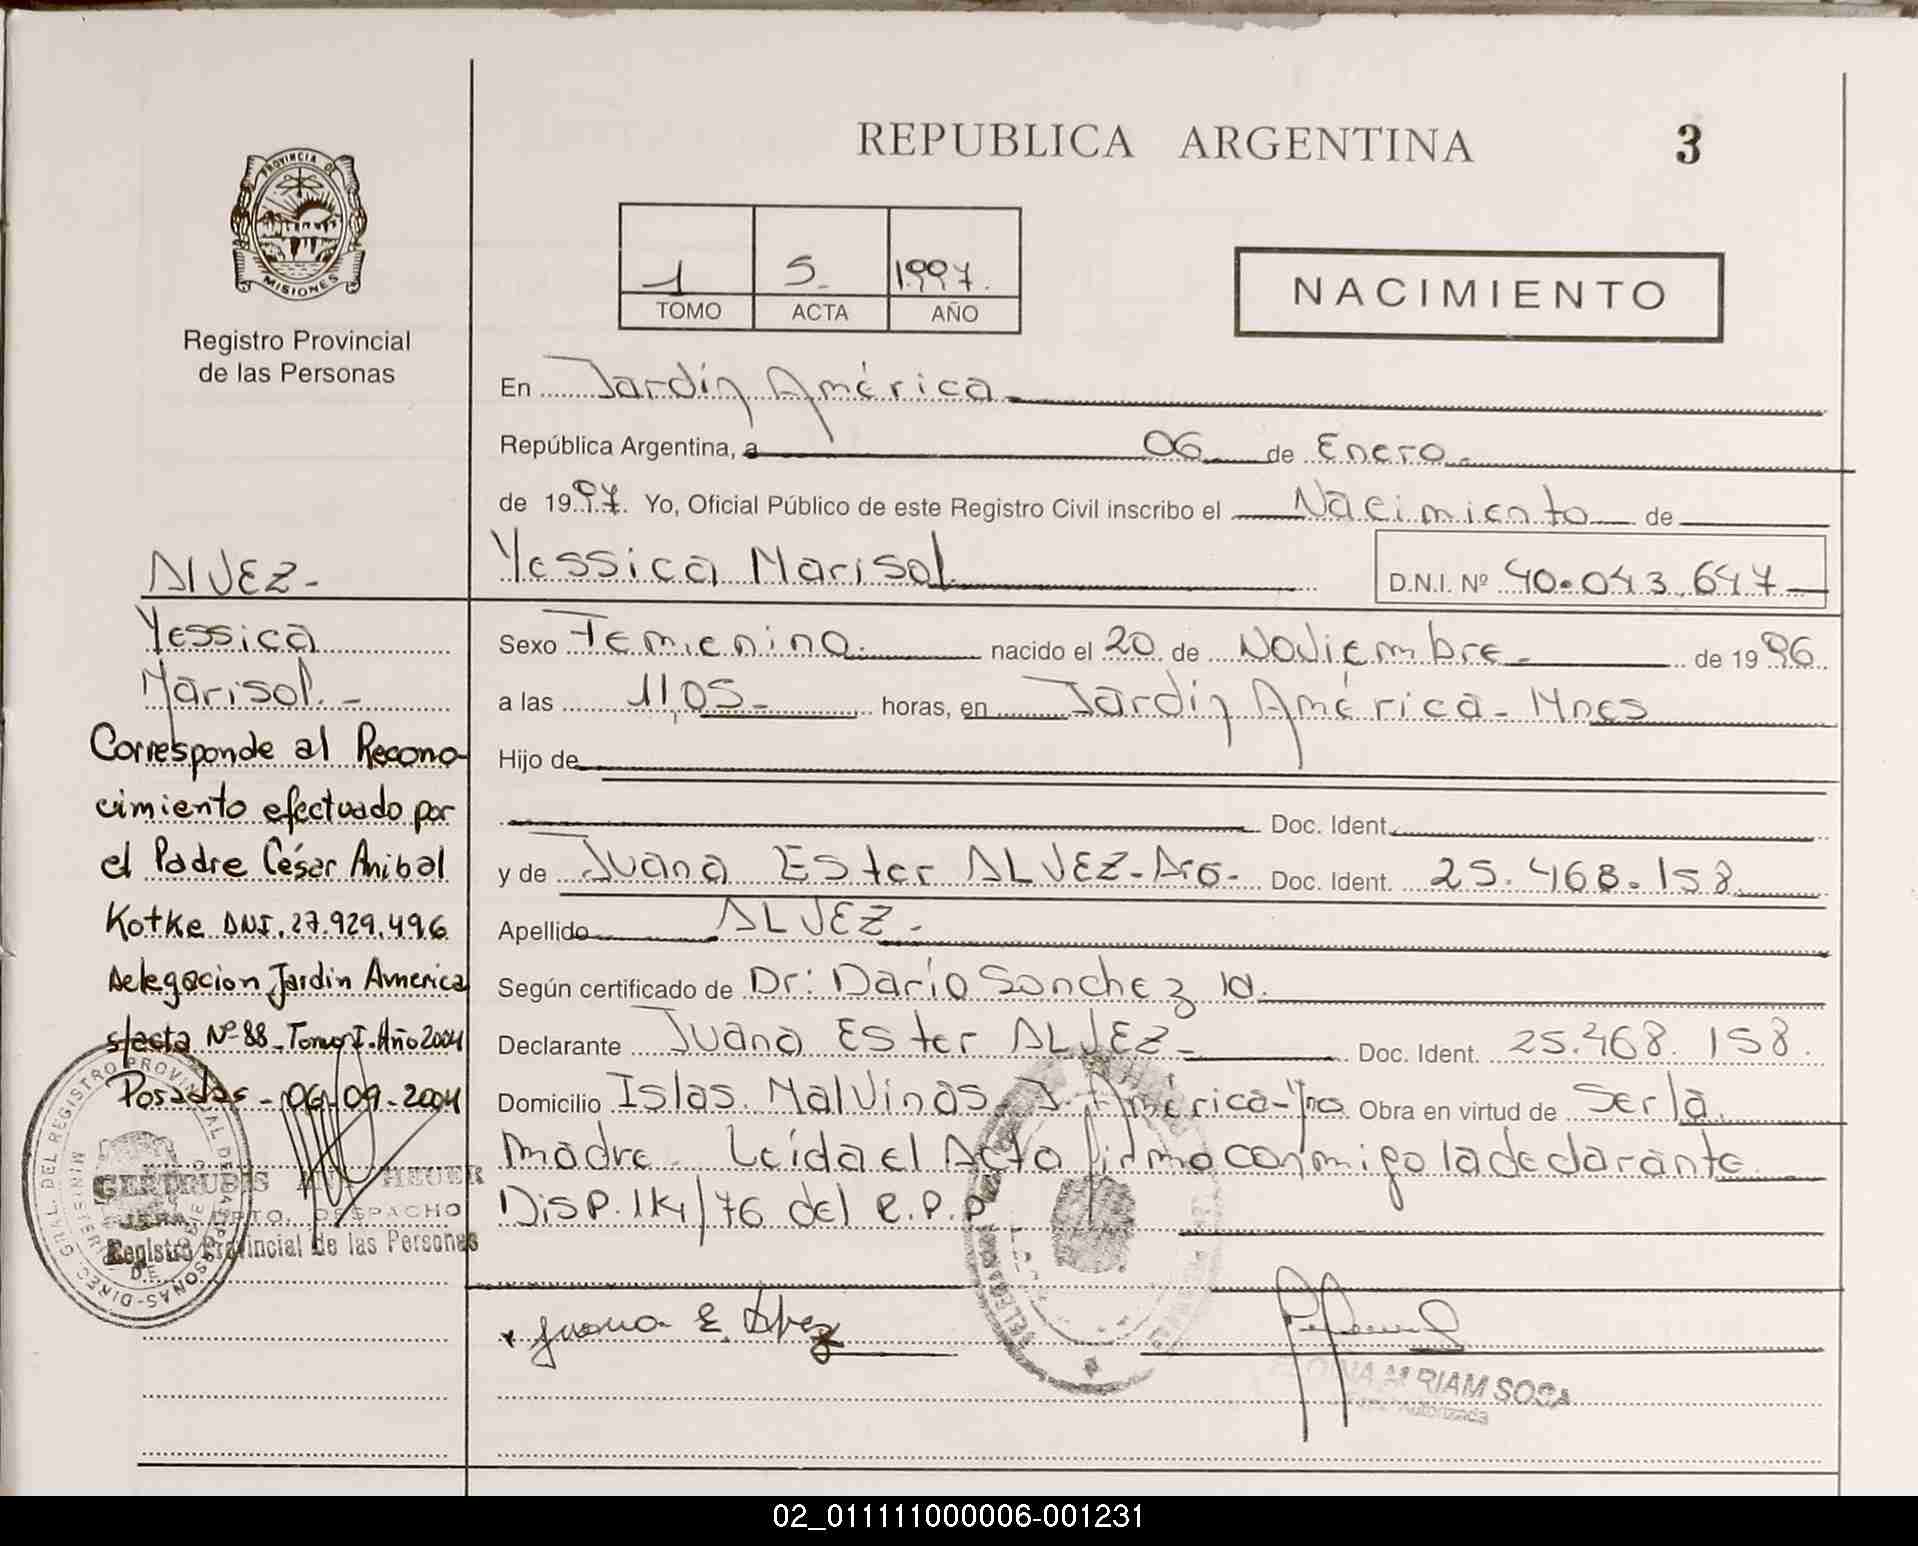 REPUBLICA ARGENTINA 3
PROVINCIA DE
MISIONES
Registro Provincial
de las Personas
1 5 1997.
TOMO ACTA AÑO
NACIMIENTO
En Jardín América
República Argentina, a 06 de Enero
de 1997. Yo, Oficial Público de este Registro Civil inscribo el Nacimiento de
Yessica Marisol D.N.I. Nº 40.043.647
Sexo Femenino nacido el 20 de Noviembre de 1996
a las 11,05 horas, en Jardín América - Mnes
Hijo de
Doc. Ident.
y de Juana Ester ALVEZ - Arg. Doc. Ident. 25.468.158
Apellido ALVEZ -
Según certificado de Dr: Darío Sanchez
Declarante Juana Ester ALVEZ - Doc. Ident. 25.468.158.
Domicilio Islas Malvinas J. América Obra en virtud de Ser la
madre Leída el Acta firma conmigo la declarante
Disp. 1K1/76 del R.P.P
Juana E. Alvez
MIRIAM SOSA
Autorizada
ALVEZ -
Yessica
Marisol. -
Corresponde al Recono-
cimiento efectuado por
el Padre César Anibal
Kotke DNI. 27.929.496
Delegacion Jardin America
s/acta Nº 88 - Tomo I - Año 2004
Posadas - 06-09-2004
GERTRUDIS HEUER
JEFA DPTO. DESPACHO
Registro Provincial de las Personas
02_011111000006-001231